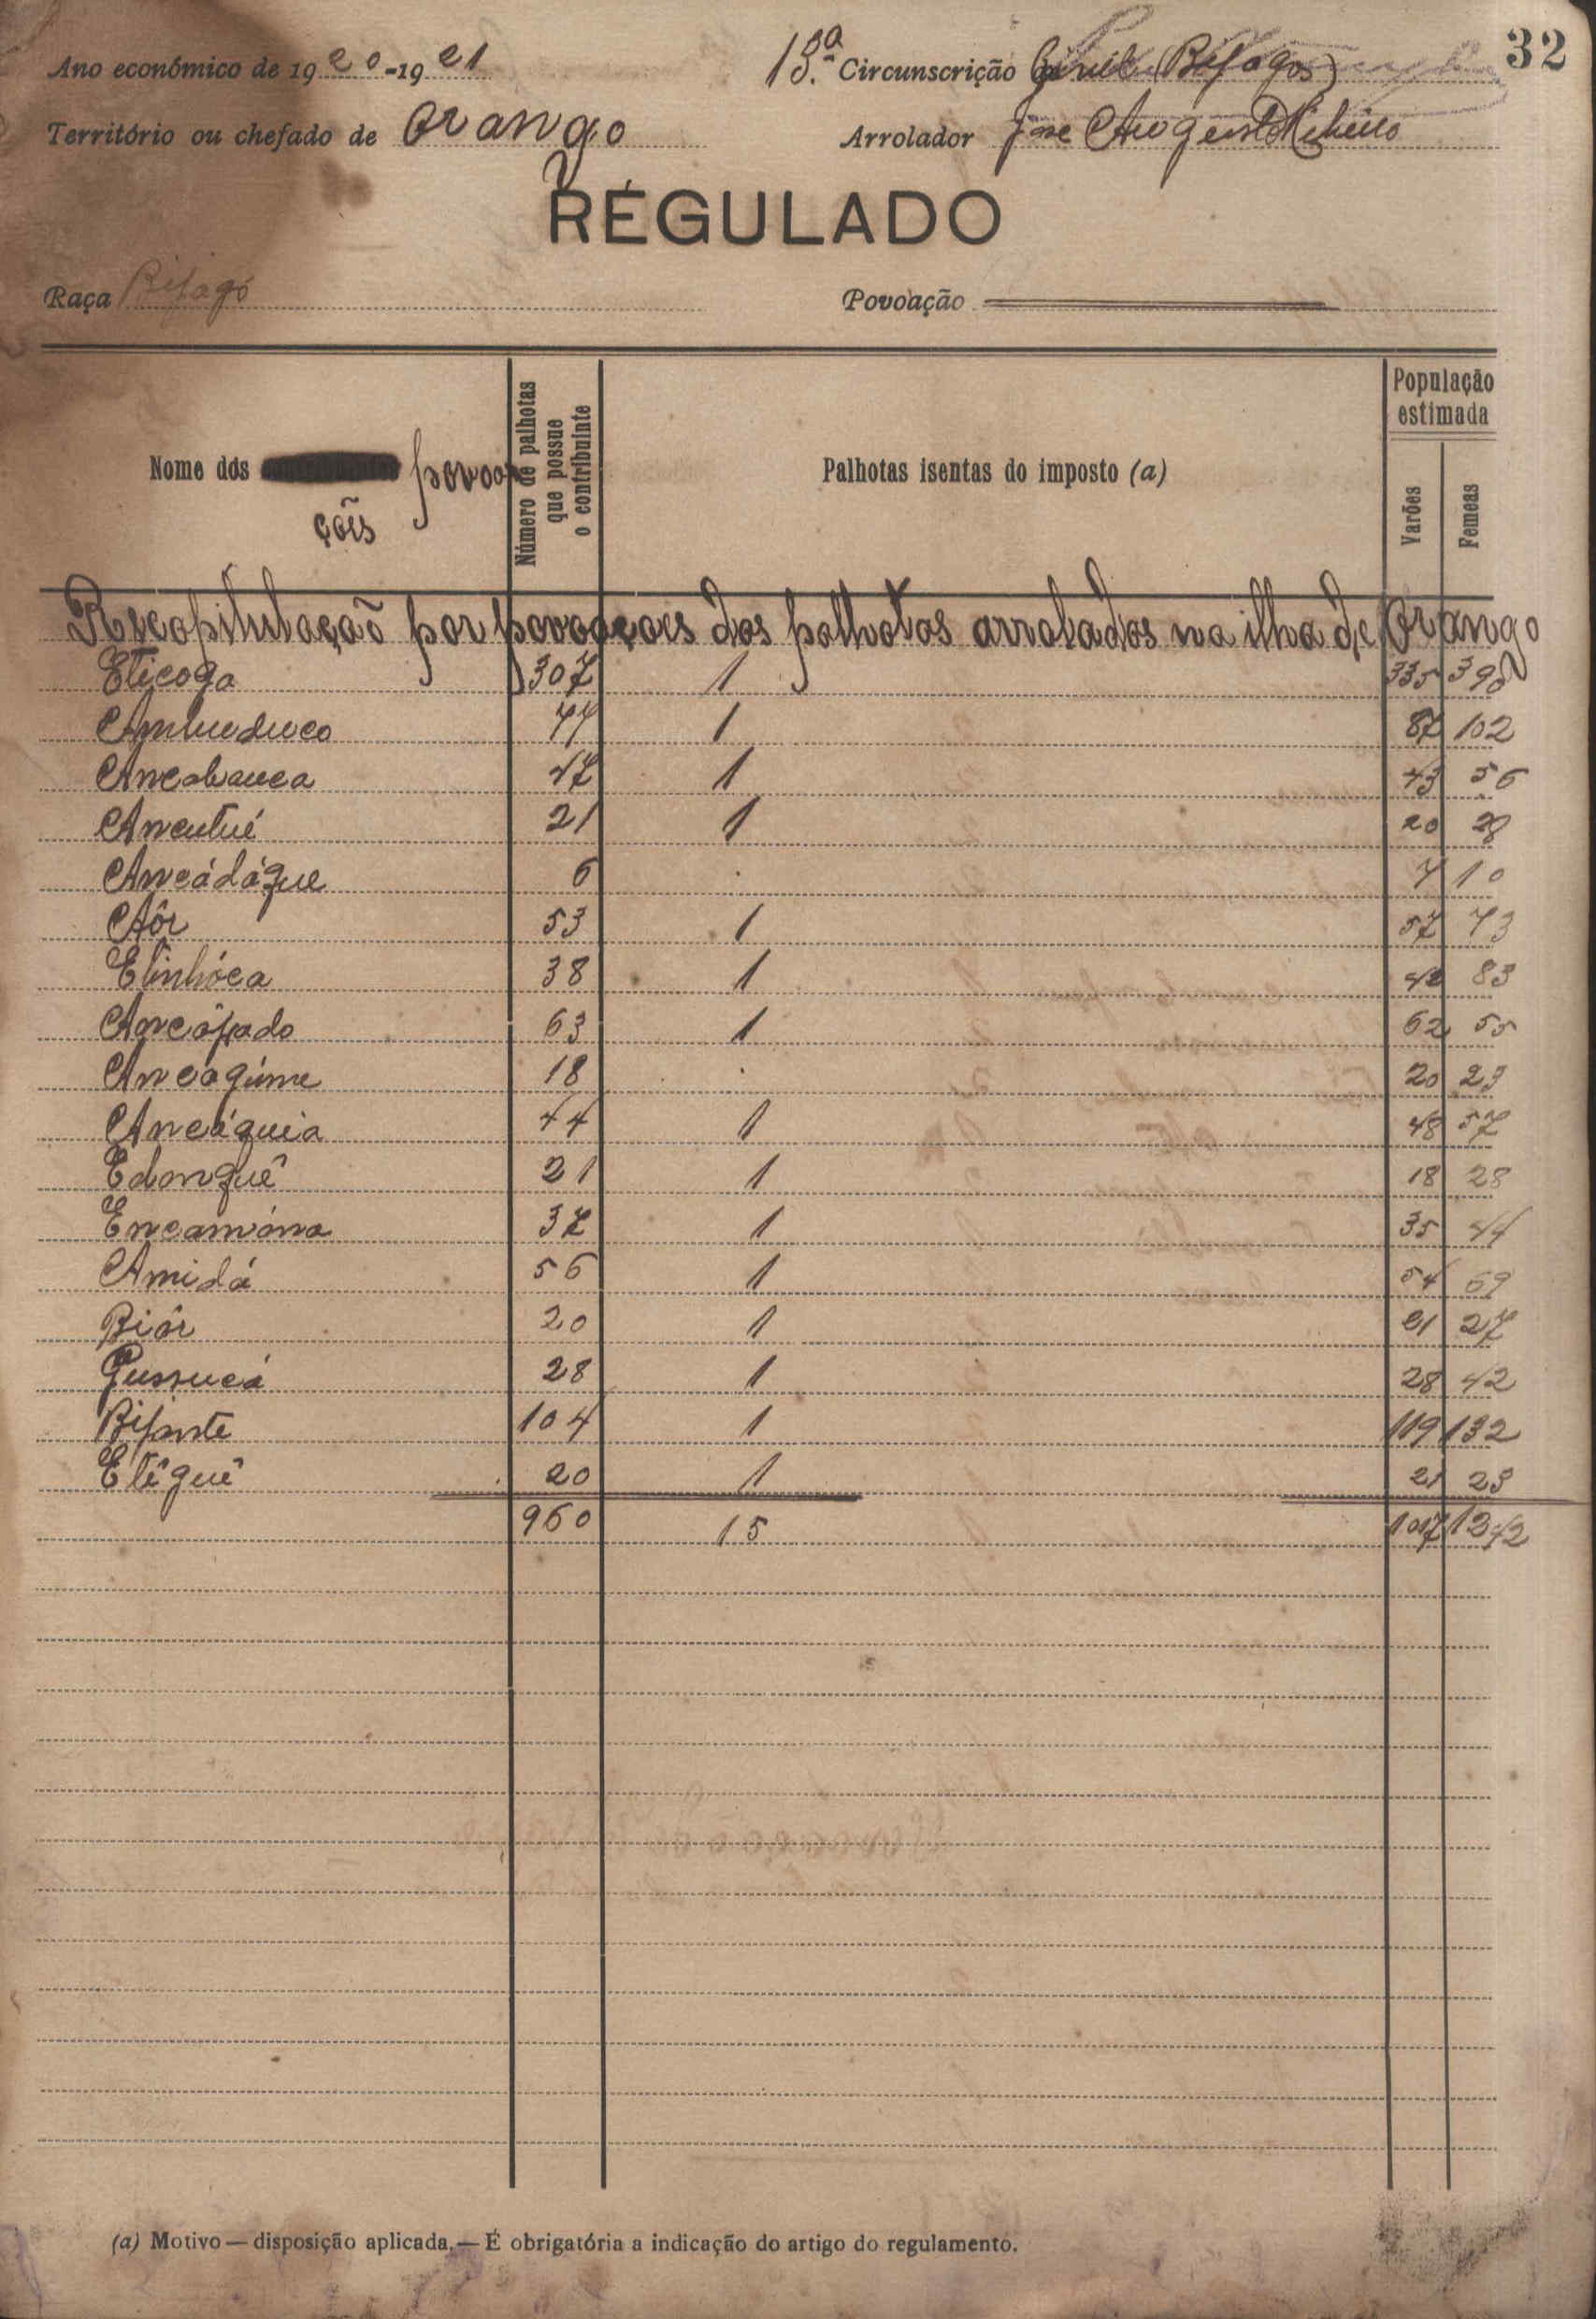 32
Ano económico de 1920-1921
13.ª Circunscrição Civil (Bijagos)
Território ou chefado de Orango
Arrolador José Augusto Ribeiro
RÉGULADO
Raça Bijagó
Povoação
Nome dos povoações
Número de palhotas que possue o contribuinte
Palhotas isentas do imposto (a)
População estimada
Varões
Femeas
Recapitulação por povoações das palhotas arroladas na ilha de Orango
Eticoga 307 1 335 390
Ambuduco 77 1 87 102
Ancabanca 47 1 43 56
Ancutué 21 1 20 28
Ancádáque 6 7 10
Aôr 53 1 57 73
Elinhóca 38 1 42 83
Ancôpado 63 1 62 55
Ancagúme 18 20 23
Ancáquia 44 1 48 57
Edanquê 21 1 18 28
Encamóna 37 1 35 44
Amidá 56 1 54 69
Biôr 20 1 21 27
Gussucá 28 1 28 42
Bijante 104 1 119 132
Etêguê 20 1 21 23
960 15 1017 1242
(a) Motivo — disposição aplicada. — É obrigatória a indicação do artigo do regulamento.